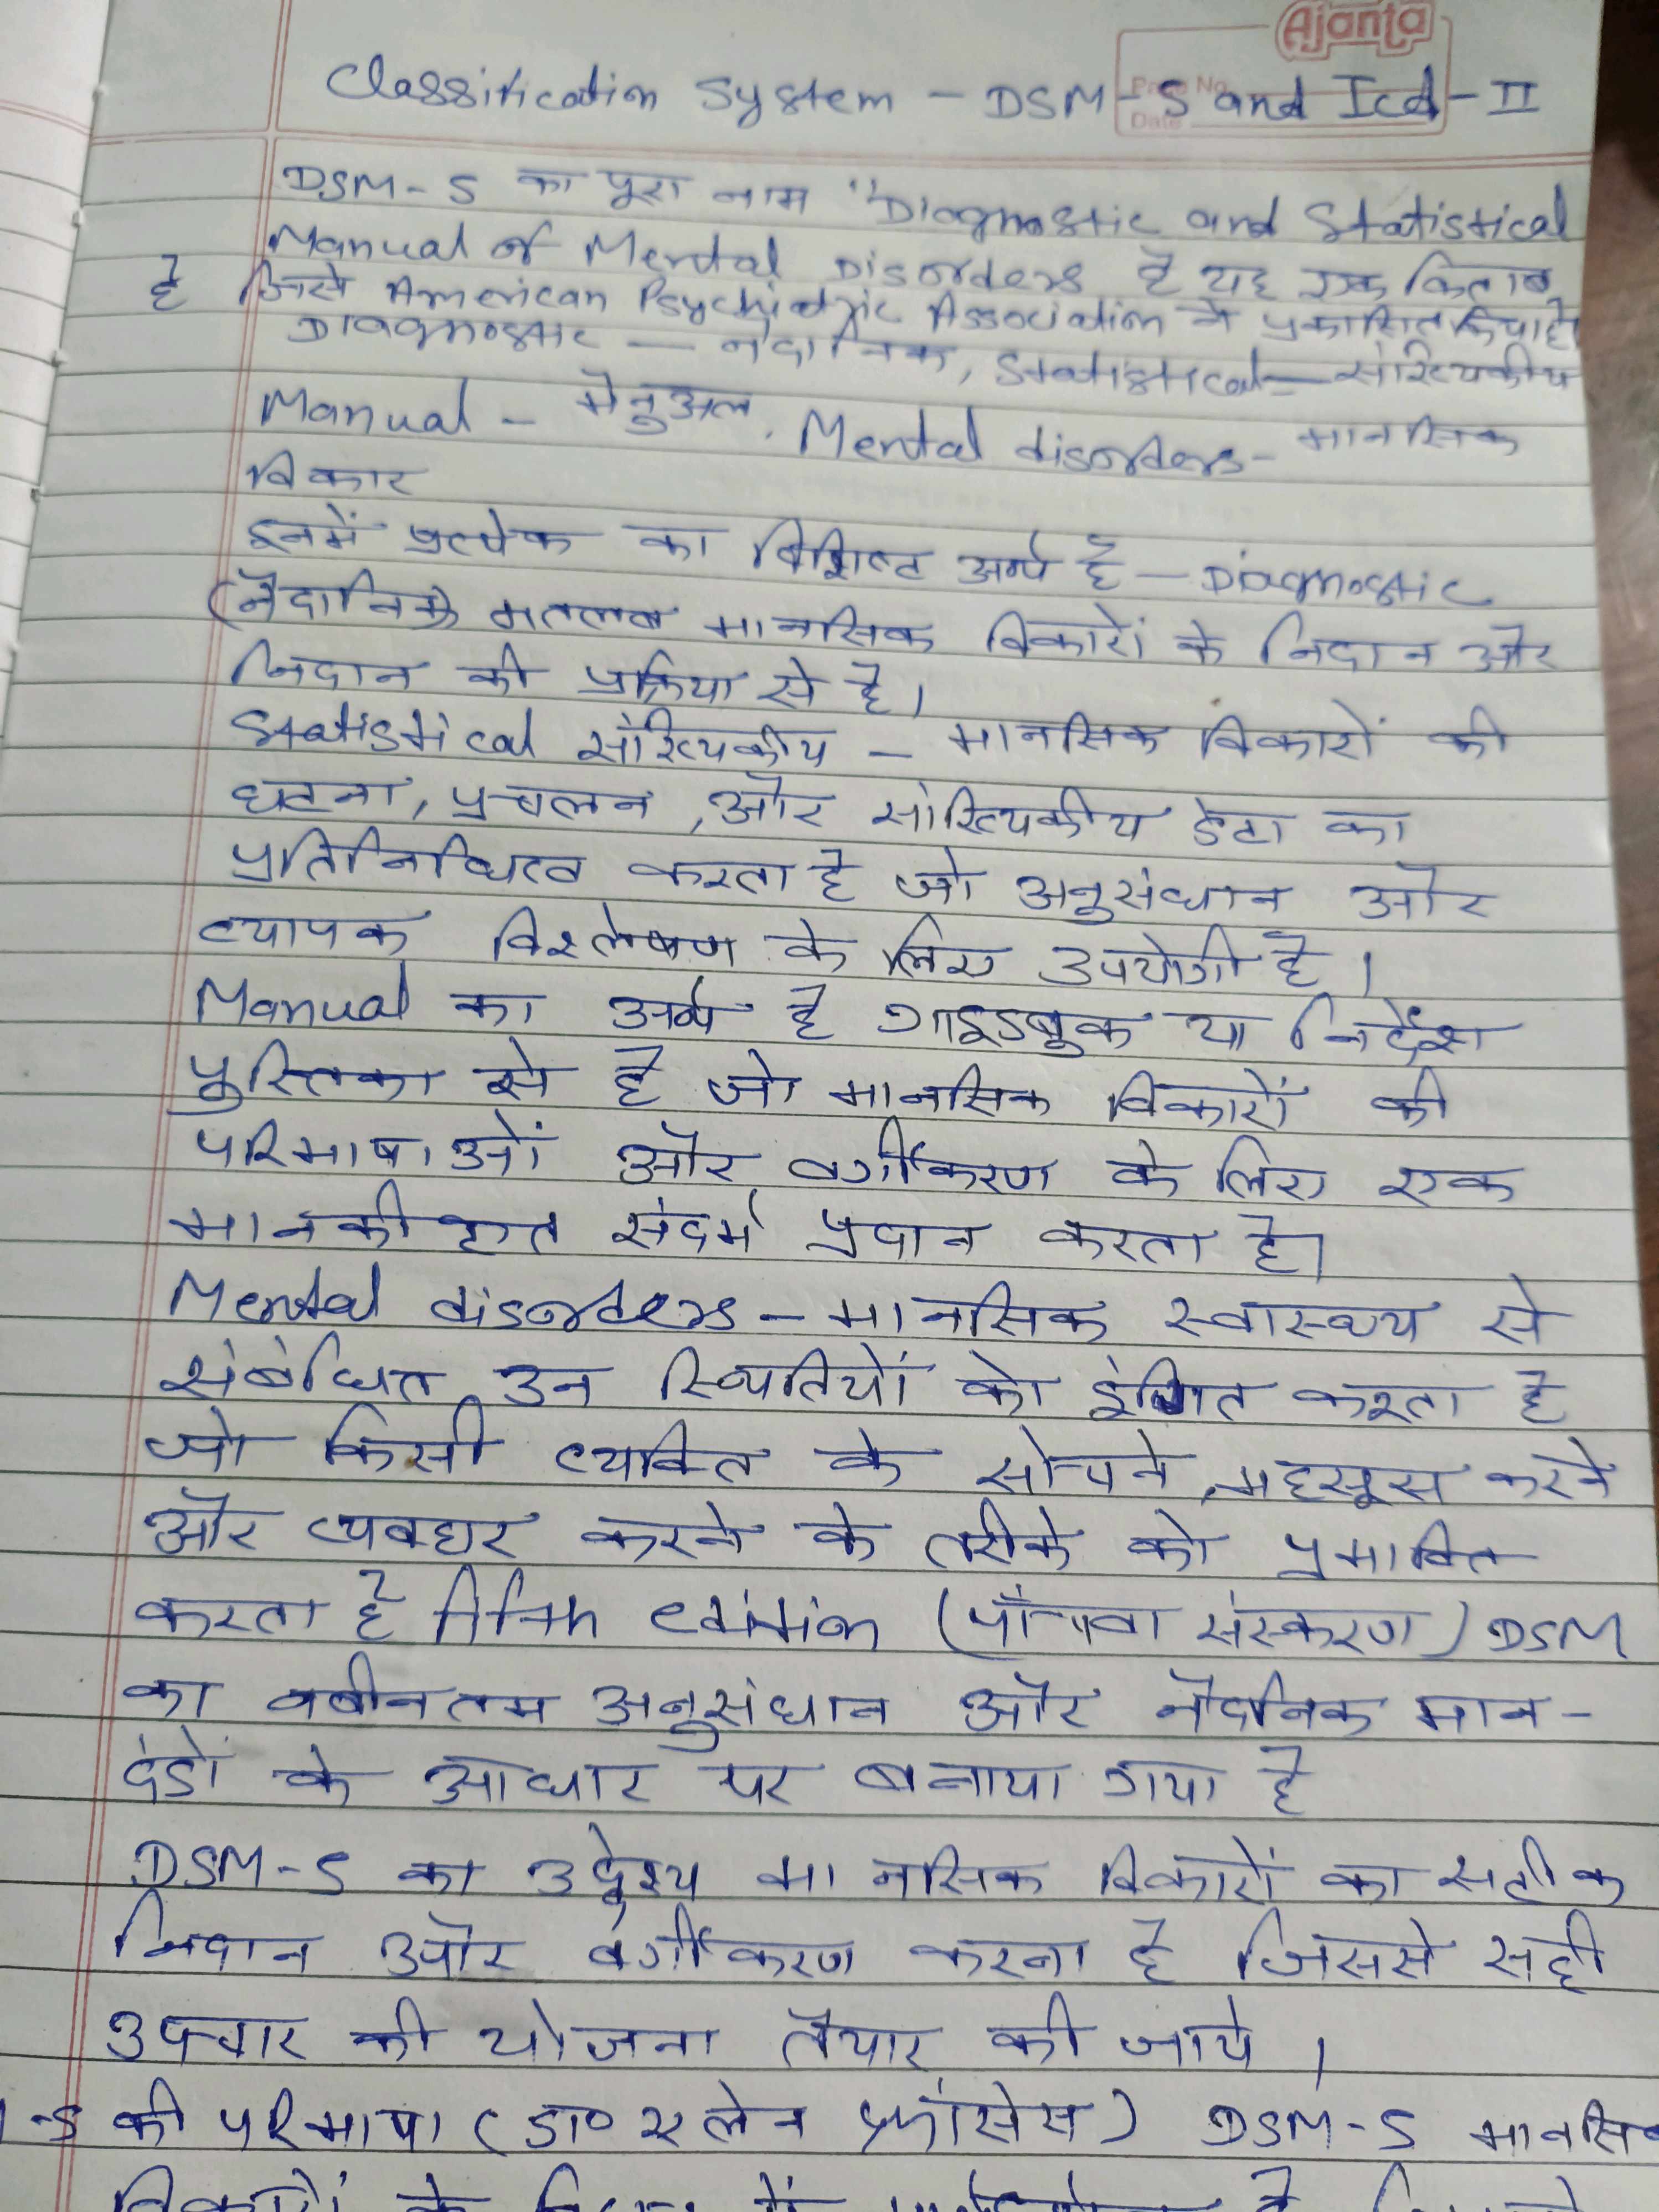 Ajanta
Page No.
Date
Classification System - DSM-5 and Icd-II
DSM-5 का पूरा नाम "Diagnostic and Statistical
Manual of Mental Disorders है यह एक किताब
है जिसे American Psychiatric Association ने प्रकाशित किया है
Diagnostic — नैदानिक, Statistical — सांख्यिकीय
Manual - मैनुअल, Mental disorders - मानसिक
विकार
इनमें प्रत्येक का विशिष्ट अर्थ है - Diagnostic
(नैदानिक) मतलब मानसिक विकारों के निदान और
निदान की प्रक्रिया से है।
Statistical सांख्यिकीय - मानसिक विकारों की
घटना, प्रचलन, और सांख्यिकीय डेटा का
प्रतिनिधित्व करता है जो अनुसंधान और
व्यापक विश्लेषण के लिए उपयोगी है।
Manual का अर्थ है गाइडबुक या निर्देश
पुस्तिका से है जो मानसिक विकारों की
परिभाषाओं और वर्गीकरण के लिए एक
मानकीकृत संदर्भ प्रदान करता है।
Mental disorders - मानसिक स्वास्थ्य से
संबंधित उन स्थितियों को इंगित करता है
जो किसी व्यक्ति के सोचने, महसूस करने
और व्यवहार करने के तरीके को प्रभावित
करता है (पाँचवा संस्करण) DSM
का नवीनतम अनुसंधान और नैदानिक मान-
दंडों के आधार पर बनाया गया है
DSM-5 का उद्देश्य मानसिक विकारों का सटीक
निदान और वर्गीकरण करना है जिससे सही
उपचार की योजना तैयार की जाये।
-5 की परिभाषा (डा० एलेन फ्रांसेस) DSM-5 मानसिक